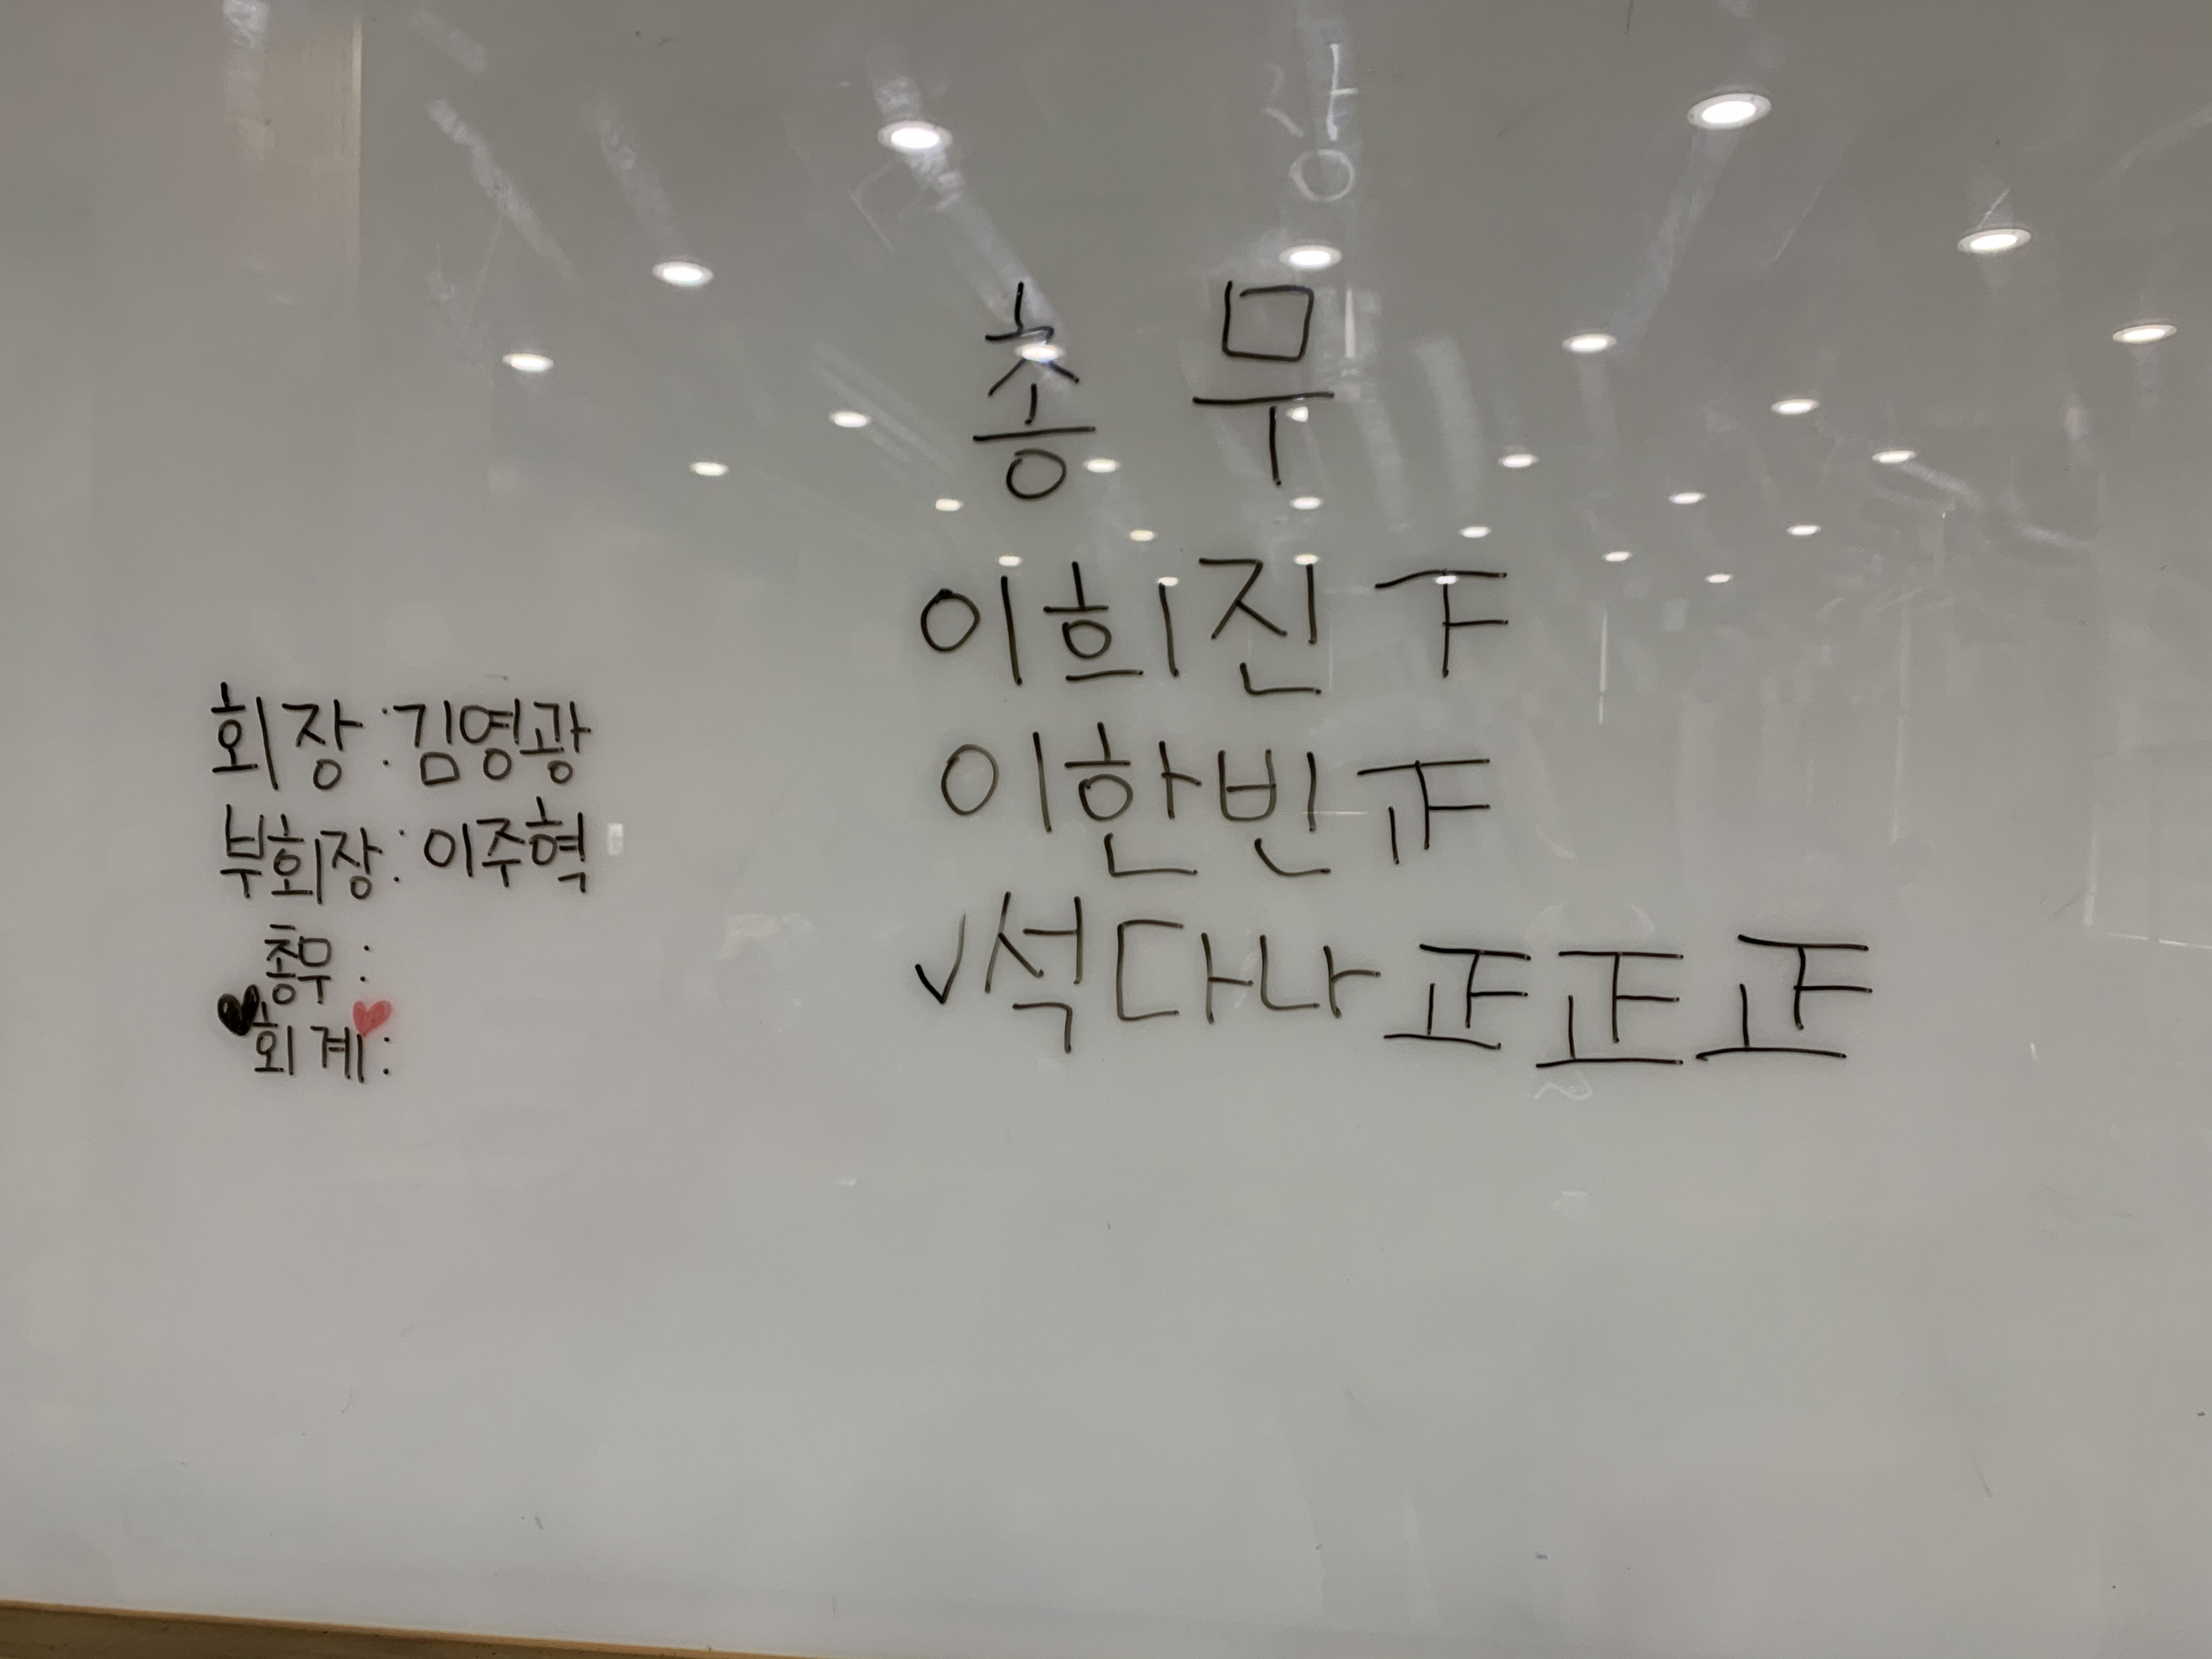 총 무
이희진 下
이한빈 正
✓석다나 正正正
회장:김영광
부회장: 이주혁
총무:
회계: